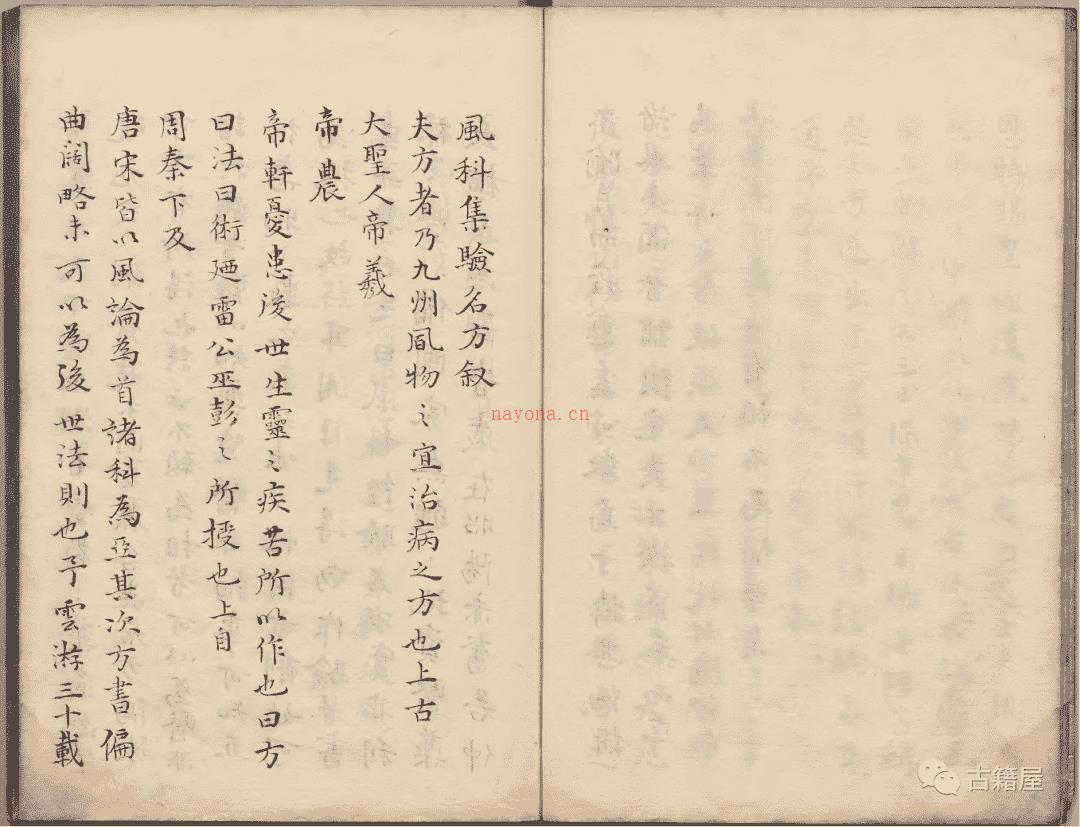 風科集驗名方叙
夫方者乃九州風物之宜治病之方也上古
大聖人帝羲
帝農
帝軒憂患後世生靈之疾苦所以作也曰方
曰法曰術廼雷公巫彭之所授也上自
周秦下及
唐宋皆以風論為首諸科為亞其次方書偏
曲闊略未可以為後世法則也予雲游三十載
nayona.cn
古籍屋